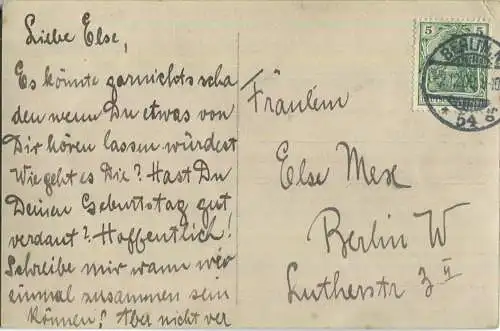 Liebe Else,
Es könnte garnichts scha
den wenn Du etwas von
Dir hören lassen würdest
Wie geht es Die? Hast Du
Deinen Geburtstag gut
verdaut? Hoffentlich!
Schreibe mir wann wir
einmal zusammen sein
können? Aber nicht ver
Fräulein
Else
Berlin W
Lutherstr
5 5
BERLIN
* 54